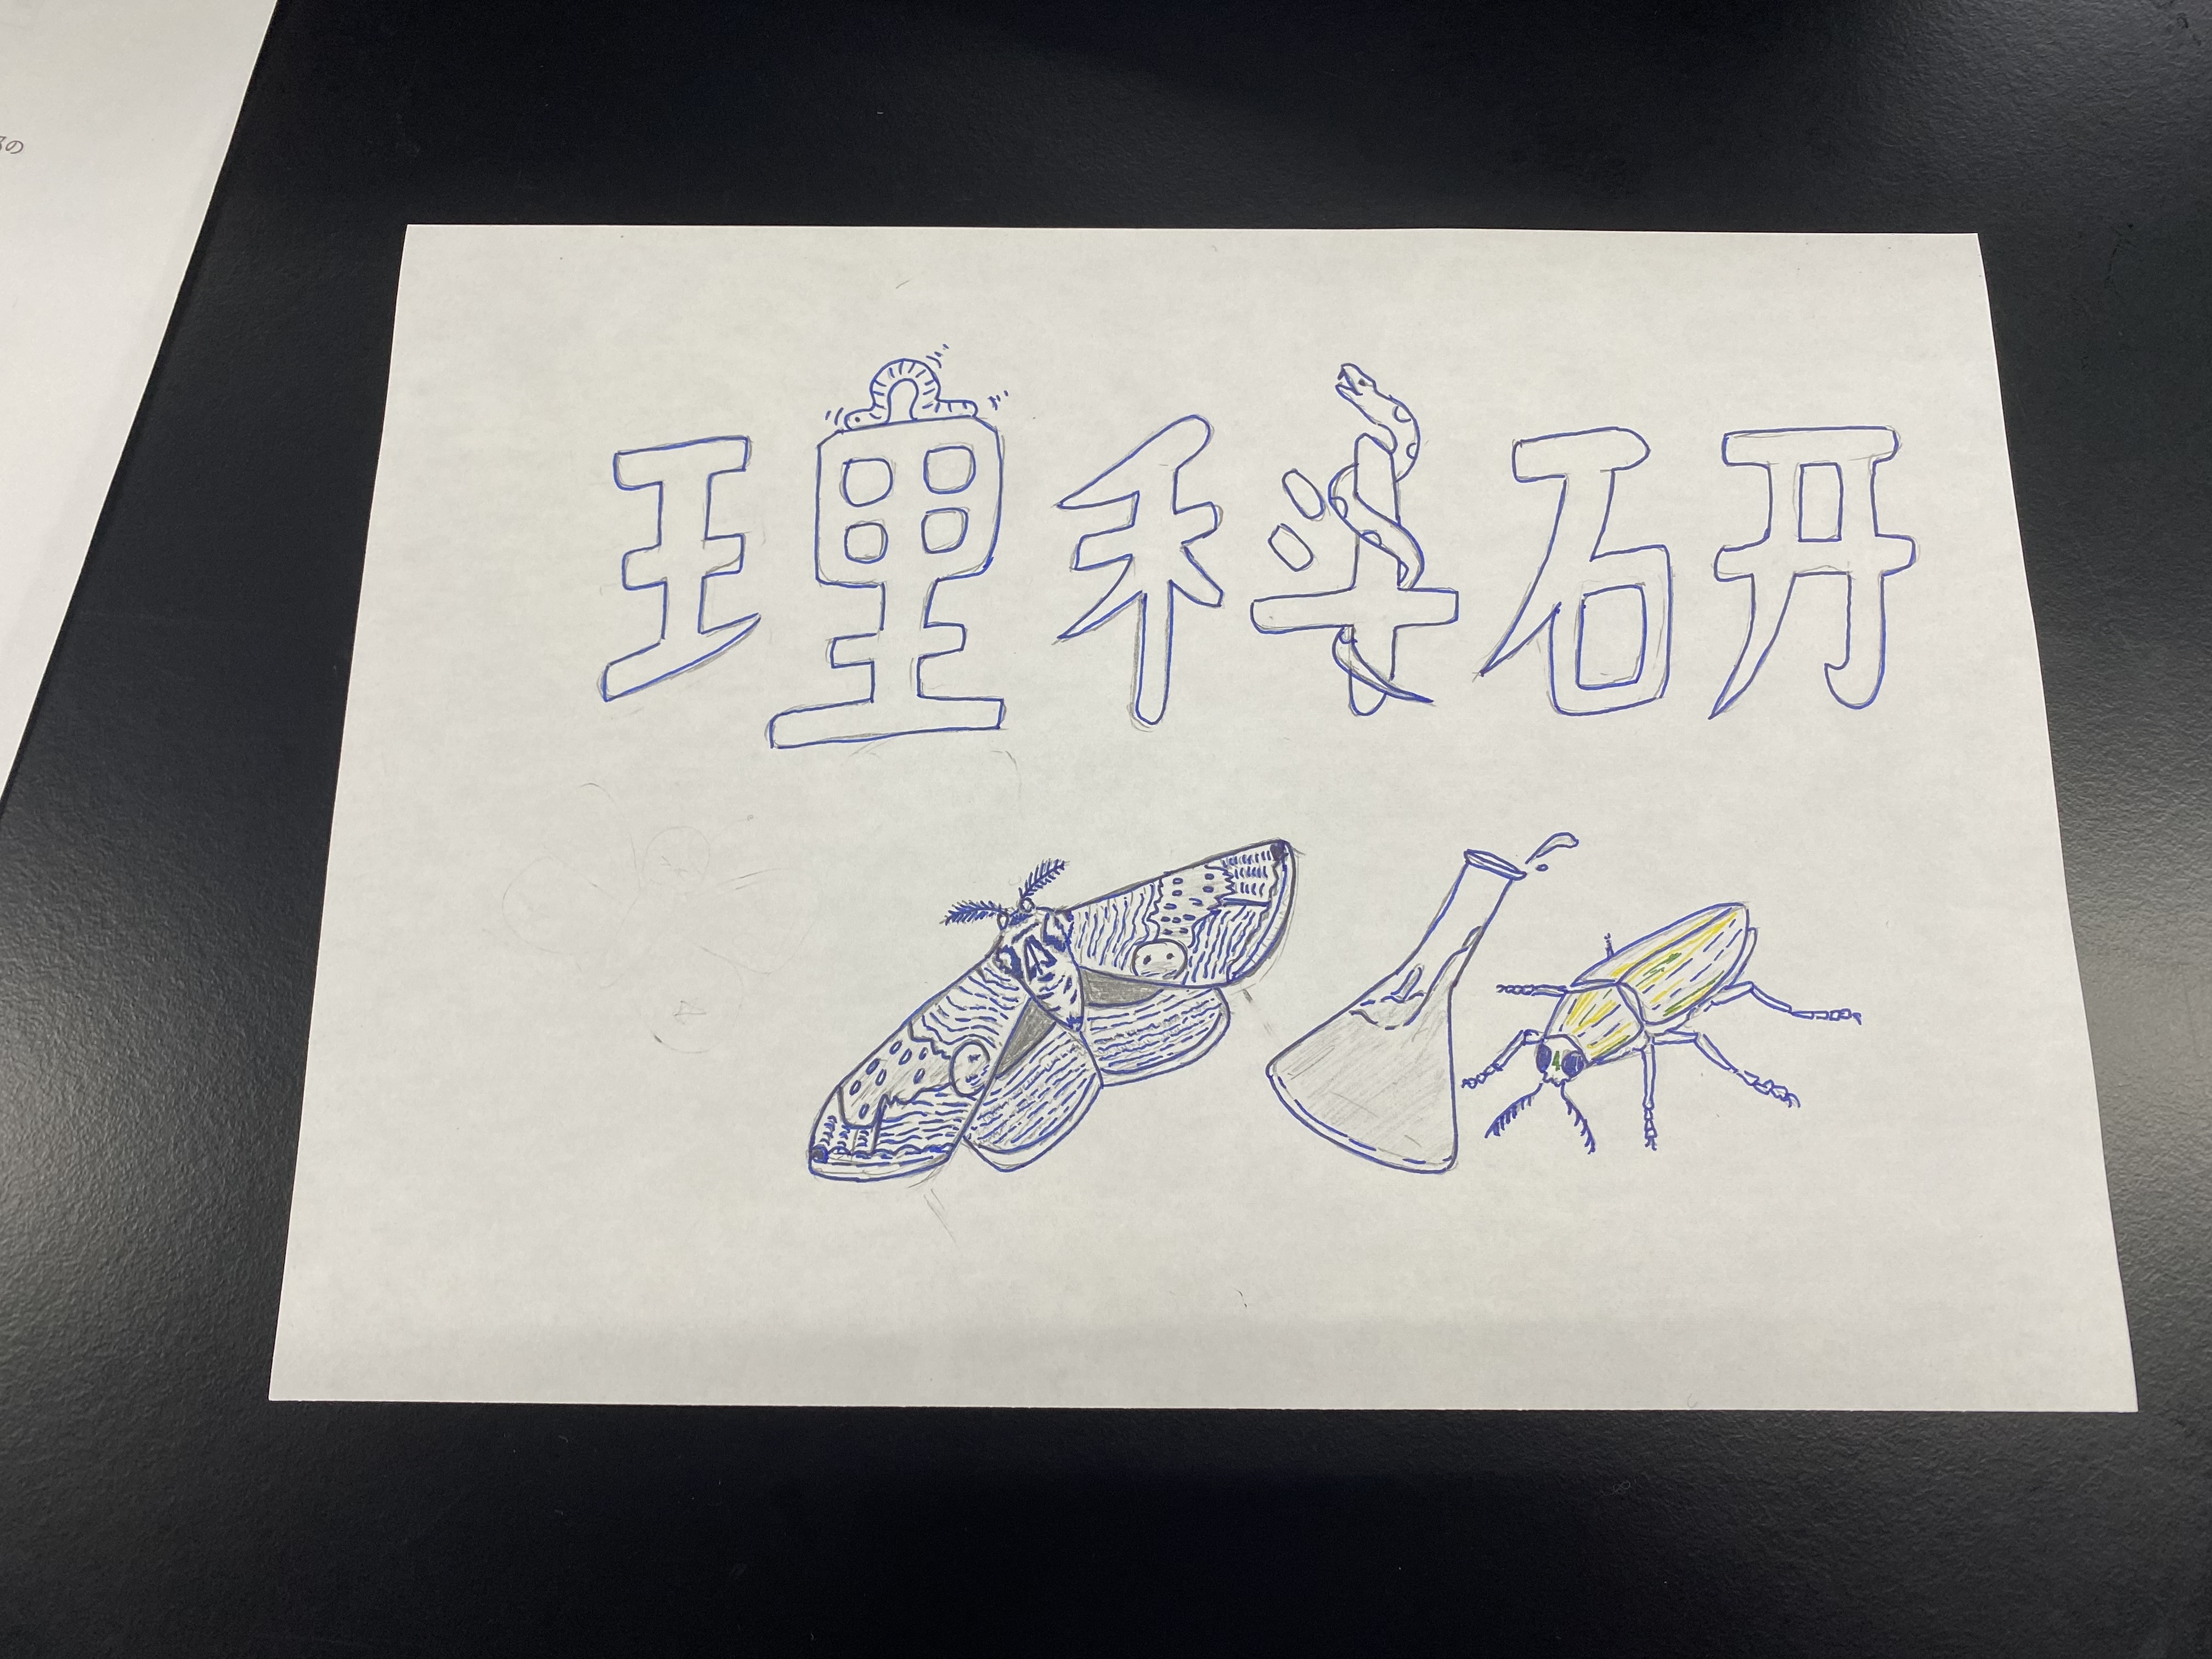 の
理科研